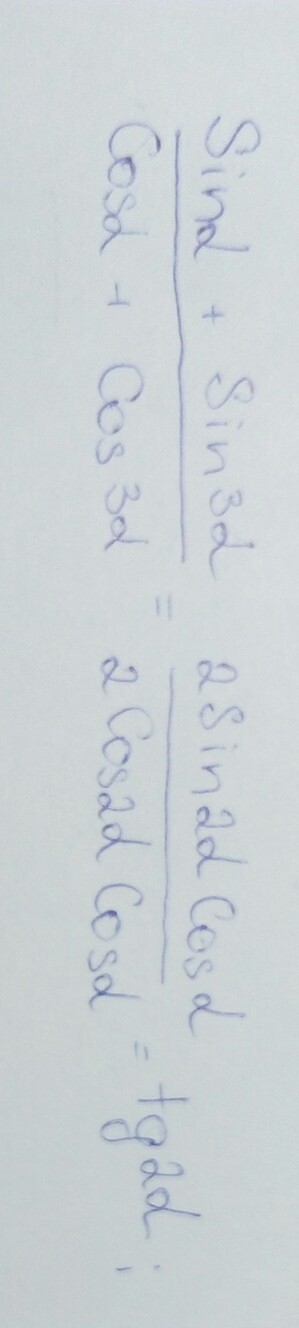 Sinα + Sin3α / Cosα + Cos3α = 2Sin2α Cosα / 2Cos2α Cosα = tg2α ;